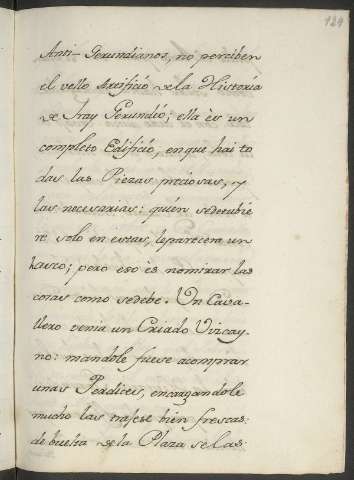 124
Anti-Gerundianos, no perciben
el vello Artificio de la Historia
de Fray Gerundio; ella ès un
completo Edificio, en que hai to
das las Piezas preciosas, y
las necesarias: quien sedetubie
re solo en estas, leparecera un
hasco; pero eso ès no mirar las
cosas como sedebe. Un Cava-
llero tenia un Criado Vizcay-
no: mandole fuese acomprar
unas Perdices, encargandole
mucho las trajese bien frescas:
de buelta de la Plaza selas